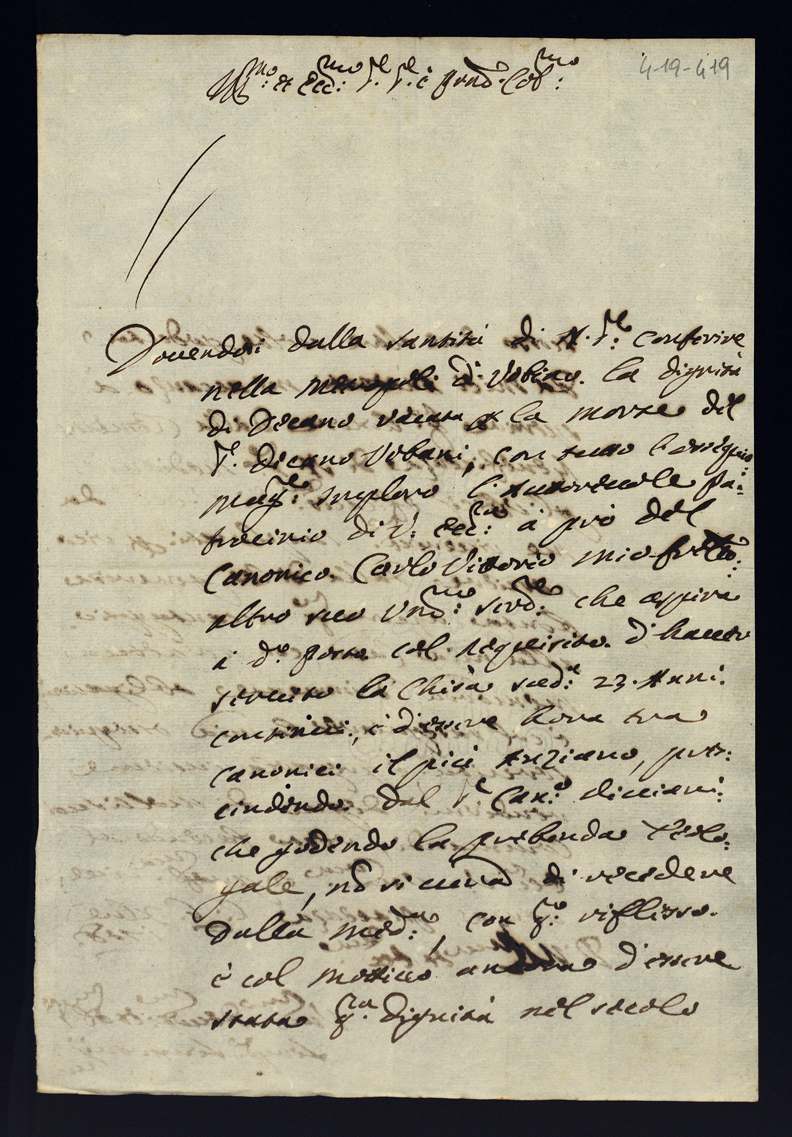 4-19-419
Ill:mo et Ecc:mo S.r S.r e Pron Col:mo
Dovendosi dalla santità di N. S.re conferire
nella Metropoli d'Urbino la dignità
di Decano vacata p la morte del
S.r Decano Urbani, con tutto l'ossequio
mag:re imploro l'Autorevole Pa:
trocinio di V. Ecc:za à prò del
Canonico Carlo Vittorio mio frãtello:
altro suo Um:mo serv:re che aspira
à d.o posto col requisito d'haver
servito la Chiesa sud:a 23. Anni
continui, e d'essere hora tra
canonici il più Anziano, pres:
cindendo dal S.r Can:co Liccianì:
che godendo la prebenda Teolo:
gale, nõ si curerà di recedere
dalla med:ma, con q.o riflesso
è col motivo ancora d'essere
stata q.ta dignità nel secolo